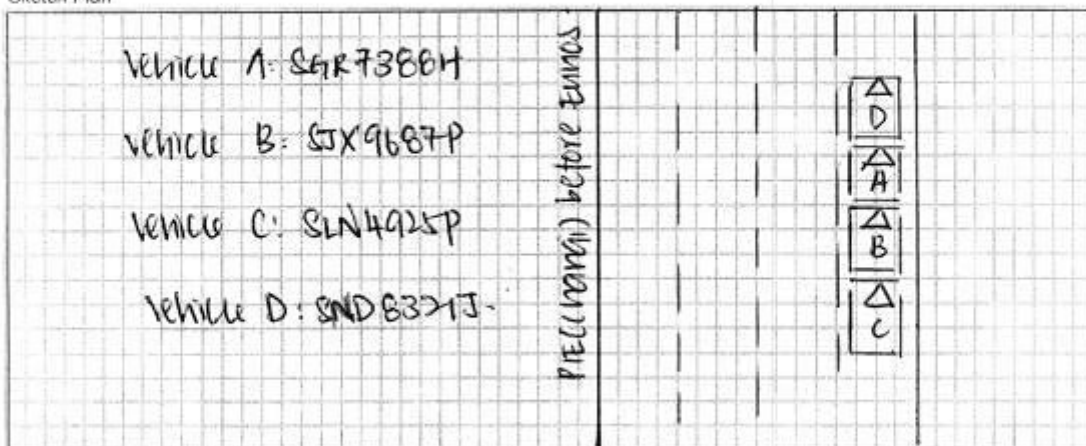 Sketch Plan
Vehicle A: SGR7388H
Vehicle B: SJX9687P
Vehicle C: SLN4925P
Vehicle D: SND8321J.
PIE(Changi) before Eunos
D
A
B
C